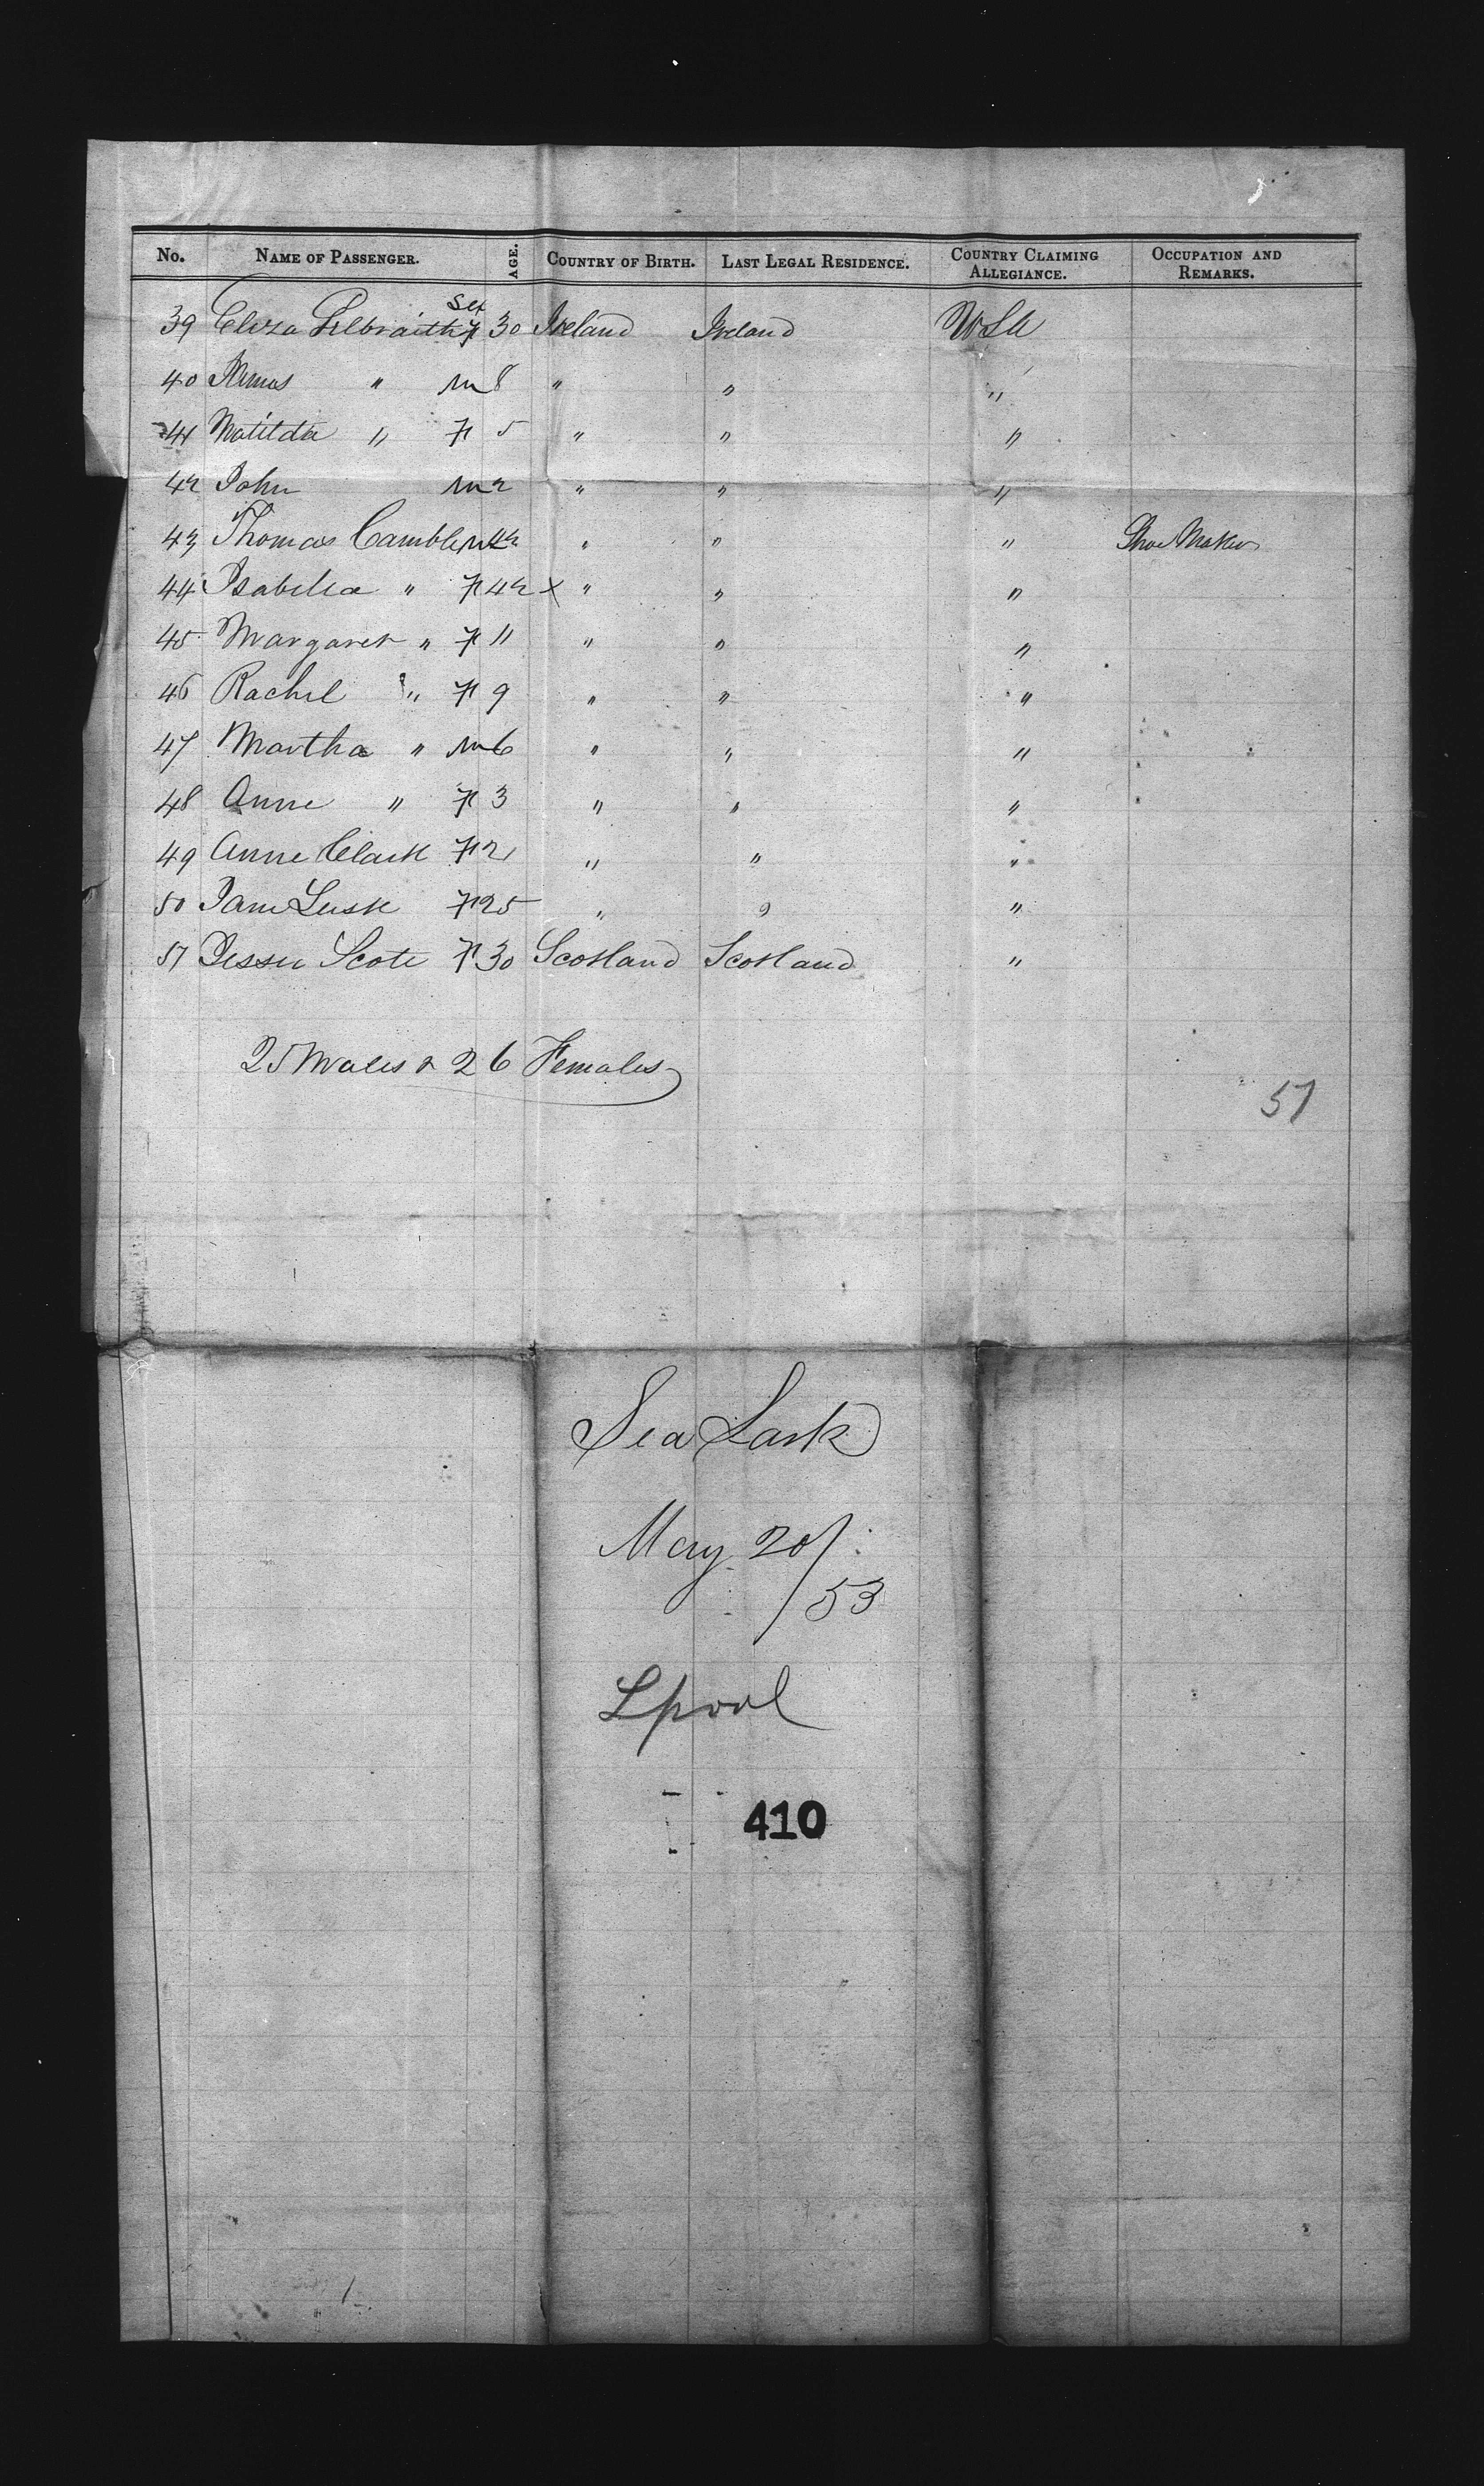 No. NAME OF PASSENGER. AGE. COUNTRY OF BIRTH. LAST LEGAL RESIDENCE. COUNTRY CLAIMING ALLEGIANCE. OCCUPATION AND REMARKS.
Sex
39 Eliza Gilbraith F 30 Ireland Ireland
40 " M 8 " " "
41 Matilda " F 5 " " "
42 John M 2 " " "
43 Thomas Camble M 42 " " " Shoe Maker
44 Isabella " F 42 x " " "
45 Margaret " F 11 " " "
46 Rachel " F 9 " " "
47 Martha " M 6 " " "
48 Anne " F 3 " " "
49 Anne Clark F 21 " " "
50 Jane Lusk F 25 " " "
51 Jessie Scote F 30 Scotland Scotland "
25 Males & 26 Females
51
Sea Lark
May 20/
/53
Lpool
410